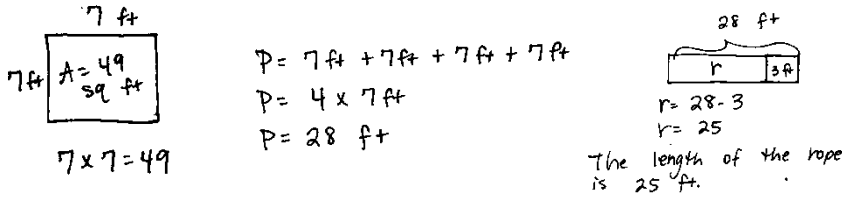 7 ft
7ft
A = 49
sq ft
7 x 7 = 49
P = 7 ft + 7ft + 7 ft + 7 ft
P = 4 x 7 ft
P = 28 ft
28 ft
r
3 ft
r = 28 - 3
r = 25
The length of the rope
is 25 ft.